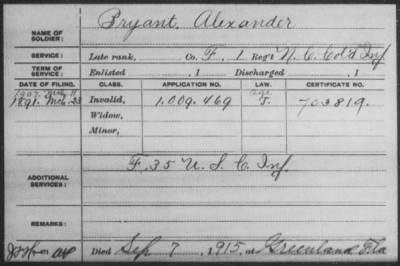 Bryant, Alexander
NAME OF SOLDIER:
SERVICE: Late rank, Co. F, 1 Reg't N. C. Col'd Inf.
TERM OF SERVICE: Enlisted , 1 Discharged , 1
DATE OF FILING. CLASS. APPLICATION NO. LAW. CERTIFICATE NO.
1907 11 age
1891. 23 Invalid, 1.009.469 J. 703819.
Widow,
Minor,
F. 35 U. S. C. Inf.
ADDITIONAL SERVICES:
REMARKS:
Died Sep 7, 1915, at Greenland Fla